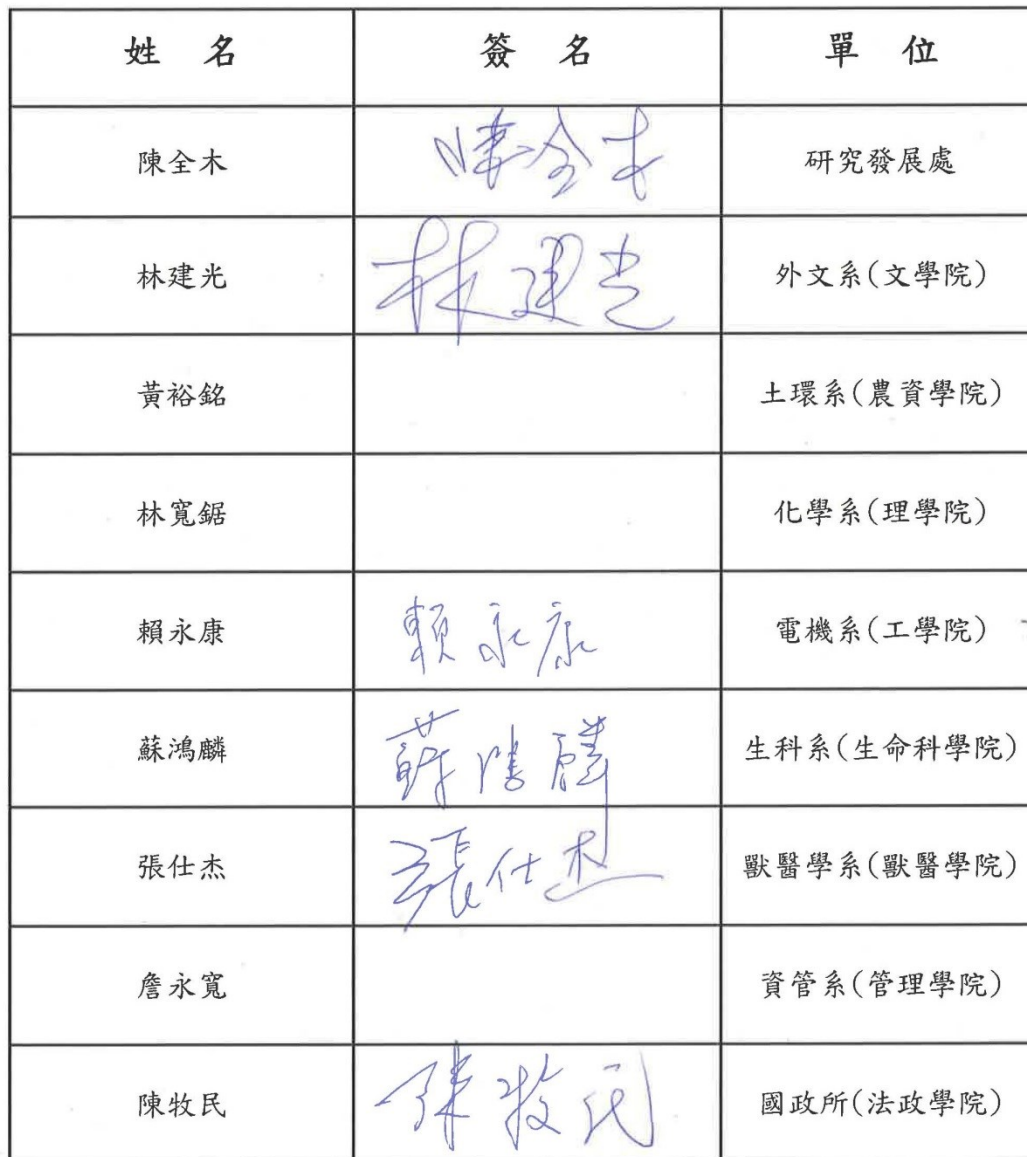 姓 名 簽 名 單 位
陳全木 陳全木 研究發展處
林建光 林建光 外文系(文學院)
黃裕銘 土環系(農資學院)
林寬鋸 化學系(理學院)
賴永康 賴永康 電機系(工學院)
蘇鴻麟 蘇鴻麟 生科系(生命科學院)
張仕杰 張仕杰 獸醫學系(獸醫學院)
詹永寬 資管系(管理學院)
陳牧民 陳牧民 國政所(法政學院)